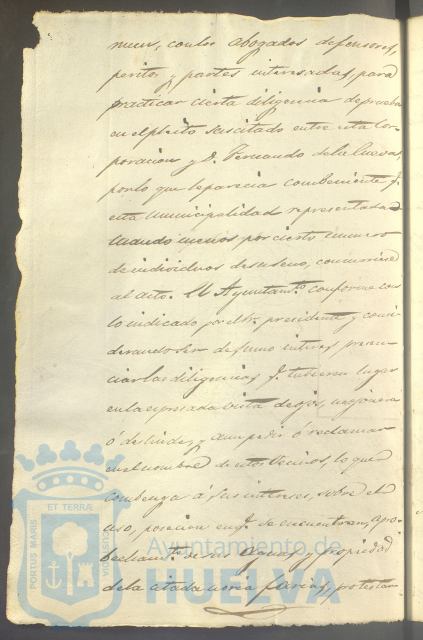 nuer, con los abogados defensores,
peritos y partes interesadas, para
practicar cierta diligencia de prueba
en el pleito suscitado entre esta Cor-
poracion y D. Fernando de la Cueva,
por lo que le parecia combeniente q.
esta municipalidad representada
cuando menos por cierto numero
de individuos de su seno, concurriese
al acto. El Ayuntam.to conforme con
lo indicado por el Sr. presidente y consi-
derando ser de sumo interes, presen-
ciar las diligencias q. tubieren lugar
en la espresada vista de ojos,
ó deslindes, y a impedir ó reclamar
en el nombre de estos vecinos, lo que
combenga á sus intereses, sobre el
uso, posecion en q. se encuentran, apro-
becham.to de las aguas y propiedad
de la citada noria protestan-
Ayuntamiento de
HUELVA
PORTUS MARIS
ET TERRÆ